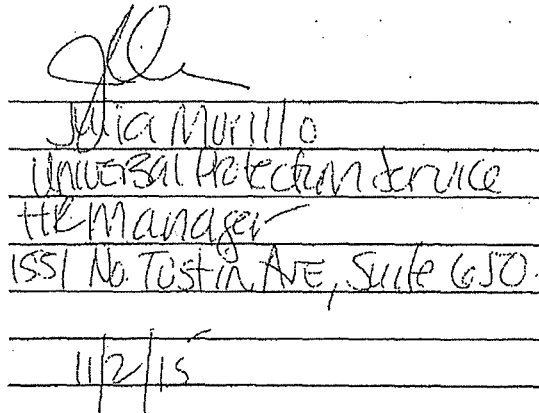 Julia Murillo
Universal Protection Service
HR Manager
1551 No. Tustin Ave, Suite 650
11/2/15